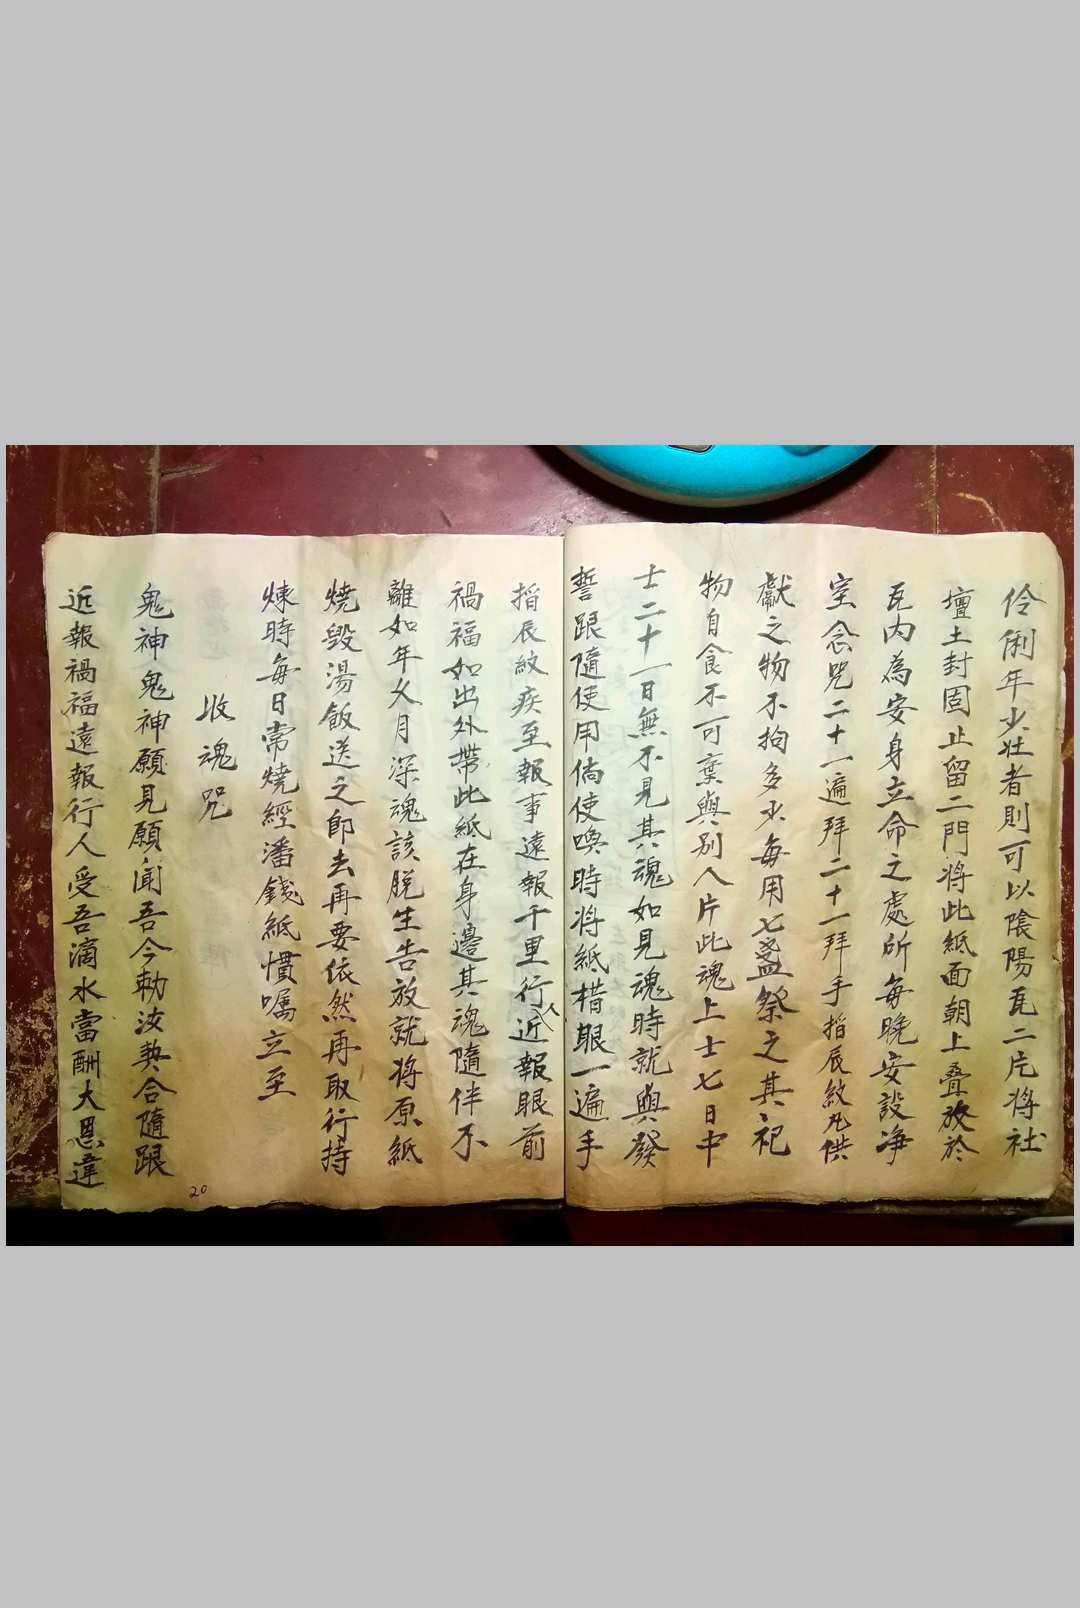 伶俐年少壯者則可以陰陽瓦二片將社
壇土封固止留二門將此紙面朝上叠放於
瓦内為安身立命之處所每晚安設净
室念咒二十一遍拜二十一拜手搯辰紋凡供
獻之物不拘多少每用七盞祭之其祀
物自食不可棄與別人片此魂上士七日中
士二十一日無不見其魂如見魂時就與發
誓跟隨使用倘使喚時将紙楷眼一遍手
搯辰紋疾至報事遠報千里行人近報眼前
禍福如出外帶此紙在身邊其魂隨伴不
離如年久月深魂該脫生告放就将原紙
燒毀湯飯送之即去再要依然再取行持
煉時每日常燒經潘錢紙慣嘱立至
收魂咒
鬼神鬼神願見願闻吾今勅汝契合隨跟
近報禍福遠報行人受吾滴水當酬大恩違
20